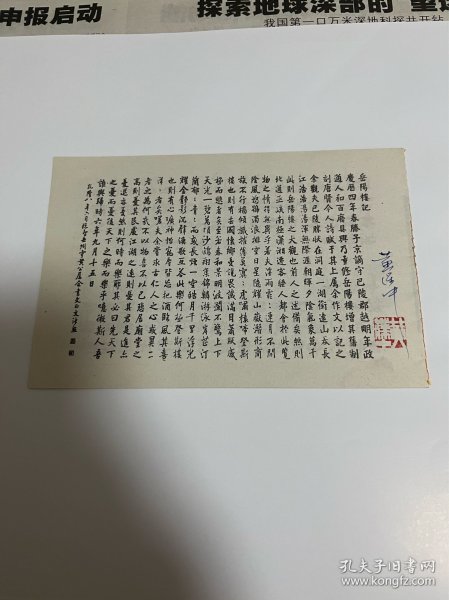 申报启动
探索地球深部的"望
我国第一口万米深地科探井开钻
岳陽樓記
慶曆四年春滕子京謫守巴陵郡越明年政
通人和百廢具興乃重修岳陽樓增其舊制
刻唐賢今人詩賦于其上屬余作文以記之
余觀夫巴陵勝狀在洞庭一湖銜遠山吞長
江浩浩湯湯橫無際涯朝暉夕陰氣象萬千
此則岳陽樓之大觀也前人之述備矣然則
北通巫峽南極瀟湘遷客騷人多會於此覽
物之情得無異乎若夫淫雨霏霏連月不開
陰風怒號濁浪排空日星隱耀山岳潛形商
旅不行檣傾楫摧薄暮冥冥虎嘯猿啼登斯
樓也則有去國懷鄉憂讒畏譏滿目蕭然感
極而悲者矣至若春和景明波瀾不驚上下
天光一碧萬頃沙鷗翔集錦鱗游泳岸芷汀
蘭郁郁青青而或長煙一空皓月千里浮光
耀金靜影沉璧漁歌互答此樂何極登斯樓
也則有心曠神怡寵辱皆忘把酒臨風其喜
洋洋者矣嗟夫余嘗求古仁人之心或異二
者之為何哉不以物喜不以己悲居廟堂之
高則憂其民處江湖之遠則憂其君是進亦
憂退亦憂然則何時而樂耶其必曰先天下
之憂而憂後天下之樂而樂乎噫微斯人吾
誰與歸時六年九月十五日
孔夫子旧书网